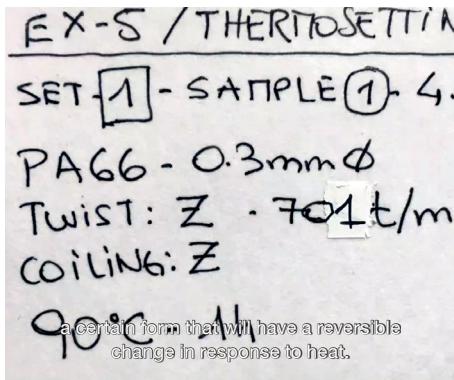 EX-5 / THERMOSETTIN
SET-1 - SAMPLE 1 - 4.
PA66 - 0.3mm Ø
TWIST: Z - 701t/m
COILING: Z
90°C - 1h
a certain form that will have a reversible
change in response to heat.